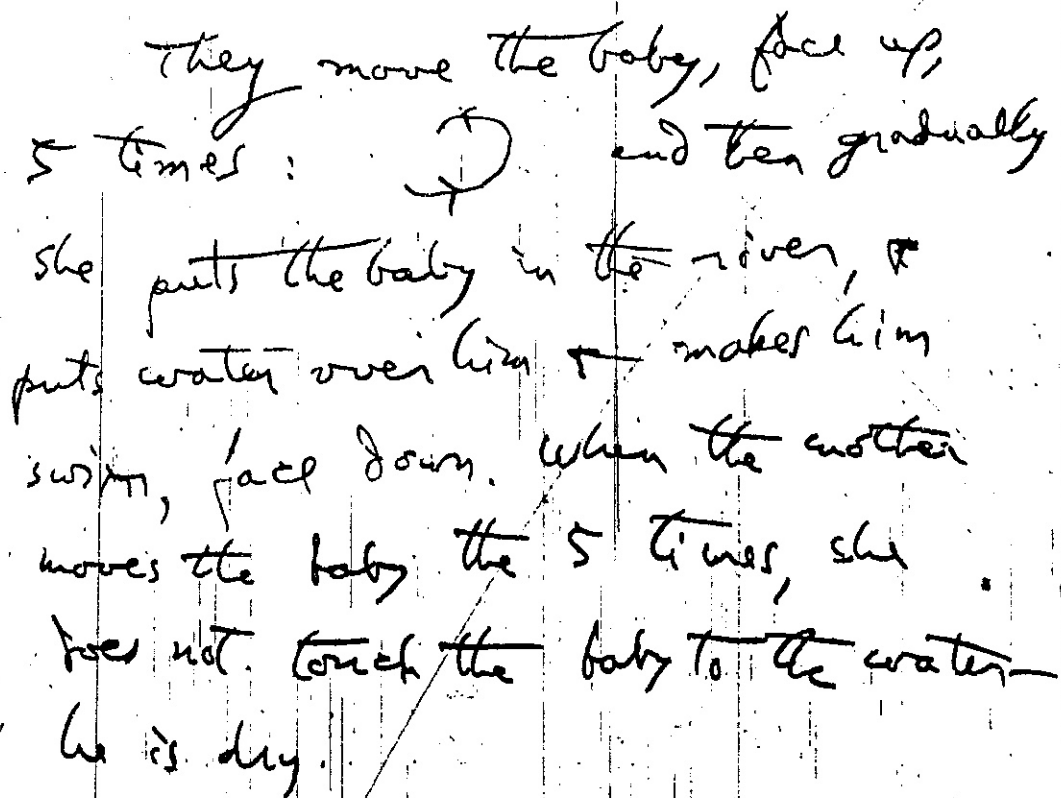 They move the baby, face up,
5 times: and then gradually
she puts the baby in the river, &
puts water over him & makes him
swim, face down. When the mother
moves the baby the 5 times, she
does not touch the baby to the water —
he is dry.